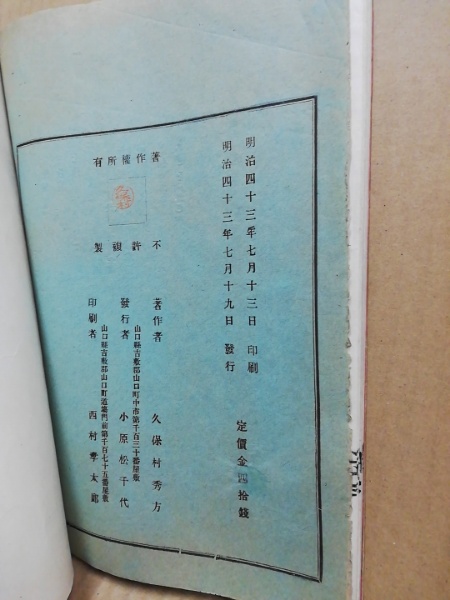 明治四十三年七月十三日 印刷
明治四十三年七月十九日 發行
定價金四拾錢
著作權所有
不許複製
著作者 久保村秀方
山口縣吉敷郡山口町中市第千百三十番屋敷
發行者 小原松千代
山口縣吉敷郡山口町道場門前第千百七十五番屋敷
印刷者 西村幸太郎